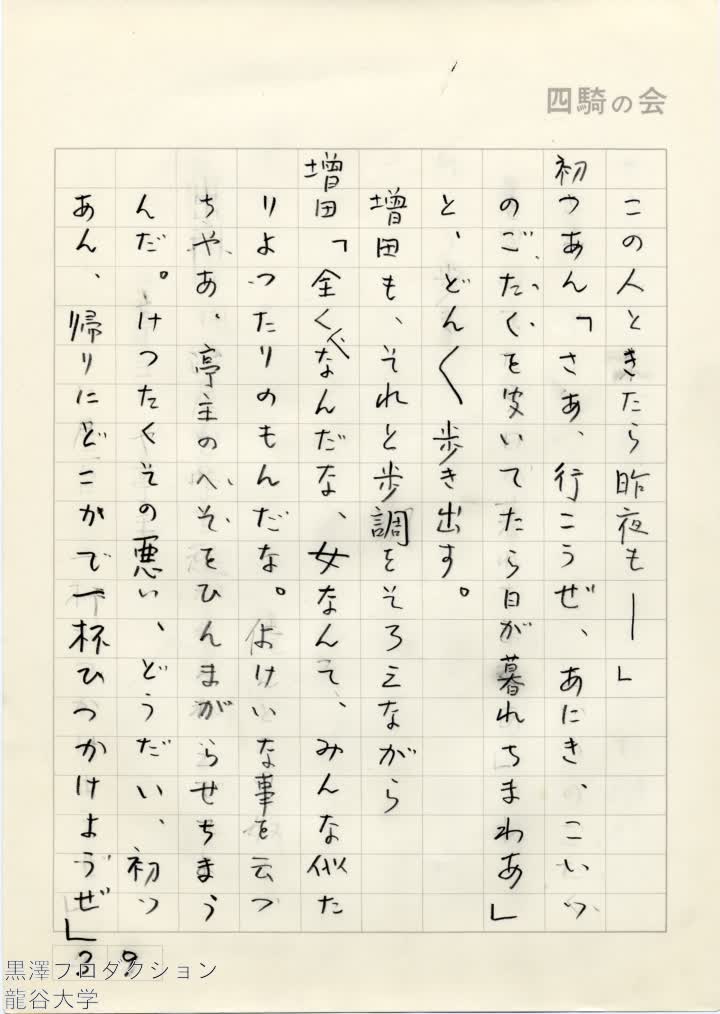 四騎の会
この人ときたら昨夜も―」
初つあん「さあ、行こうぜ、あにき、こいつ
のごたくを聞いてたら日が暮れちまわあ」
と、どん〱歩き出す。
増田も、それと歩調をそろえながら
増田「全くなんだな、女なんて、みんな似た
りよったりのもんだな。よけいな事を云つ
ちやあ、亭主のへそをひんまがらせちまう
んだ。けつたくその悪い、どうだい、初つ
あん、帰りにどこかで一杯ひつかけようぜ」
39
黒澤プロダクション
龍谷大学